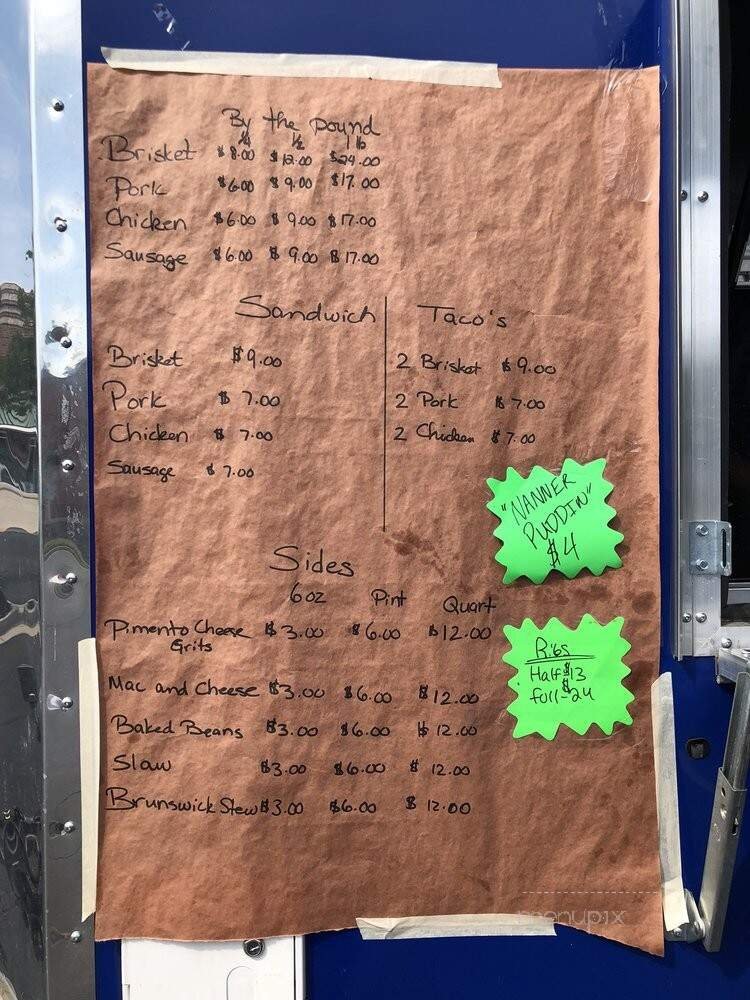 By the pound
1/4 1/2 1 lb
Brisket $8.00 $12.00 $24.00
Pork $6.00 $9.00 $17.00
Chicken $6.00 $9.00 $17.00
Sausage $6.00 $9.00 $17.00
Sandwich
Brisket $9.00
Pork $7.00
Chicken $7.00
Sausage $7.00
Taco's
2 Brisket $9.00
2 Pork $7.00
2 Chicken $7.00
"NANNER
PUDDIN"
$4
Sides
6oz Pint Quart
Pimento Cheese $3.00 $6.00 $12.00
Grits
Mac and Cheese $3.00 $6.00 $12.00
Baked Beans $3.00 $6.00 $12.00
Slaw $3.00 $6.00 $12.00
Brunswick Stew $3.00 $6.00 $12.00
Ribs
Half-$13
full-$24
menupix